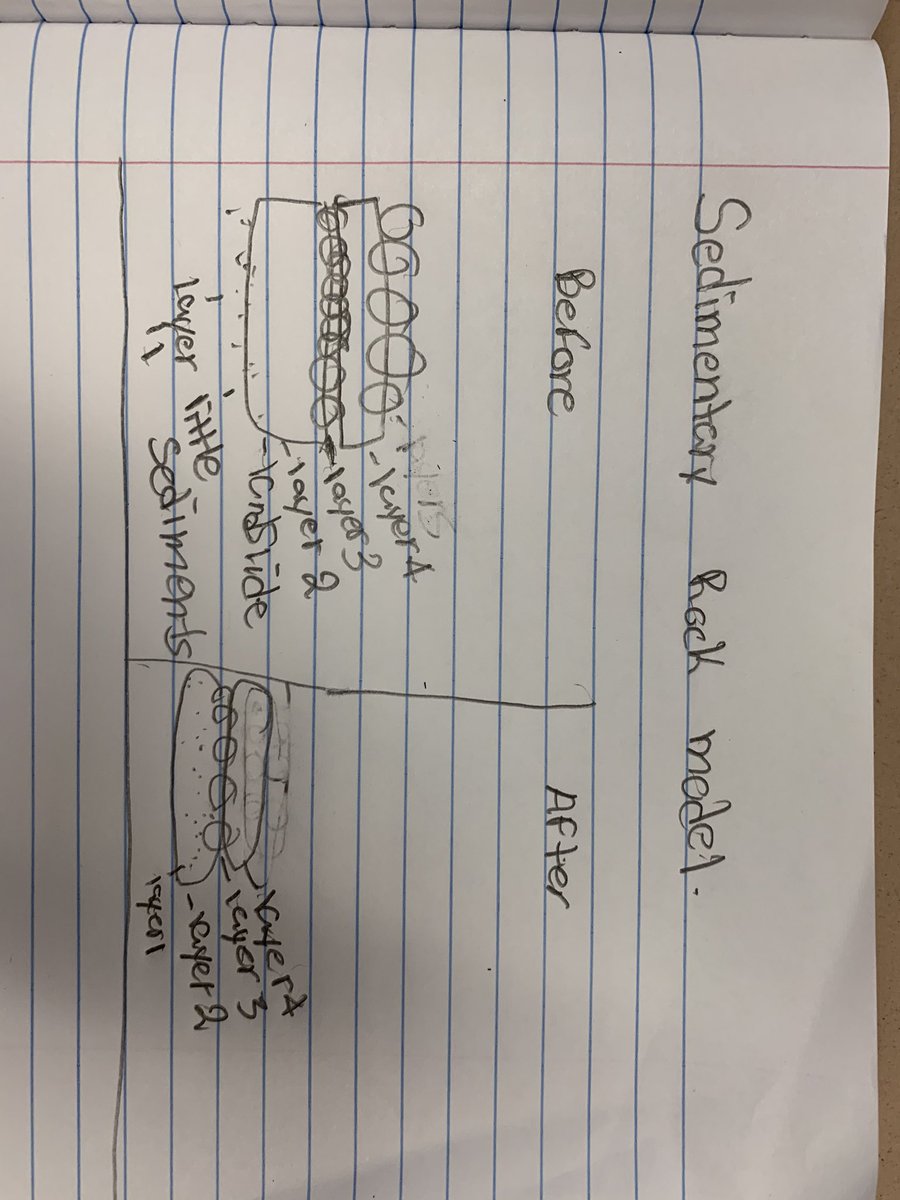 Sedimentary Rock model.
Before
After
-layer 4
-layer 3
-layer 2
-landslide
layer 1
little sediments
layer 4
layer 3
-layer 2
layer 1